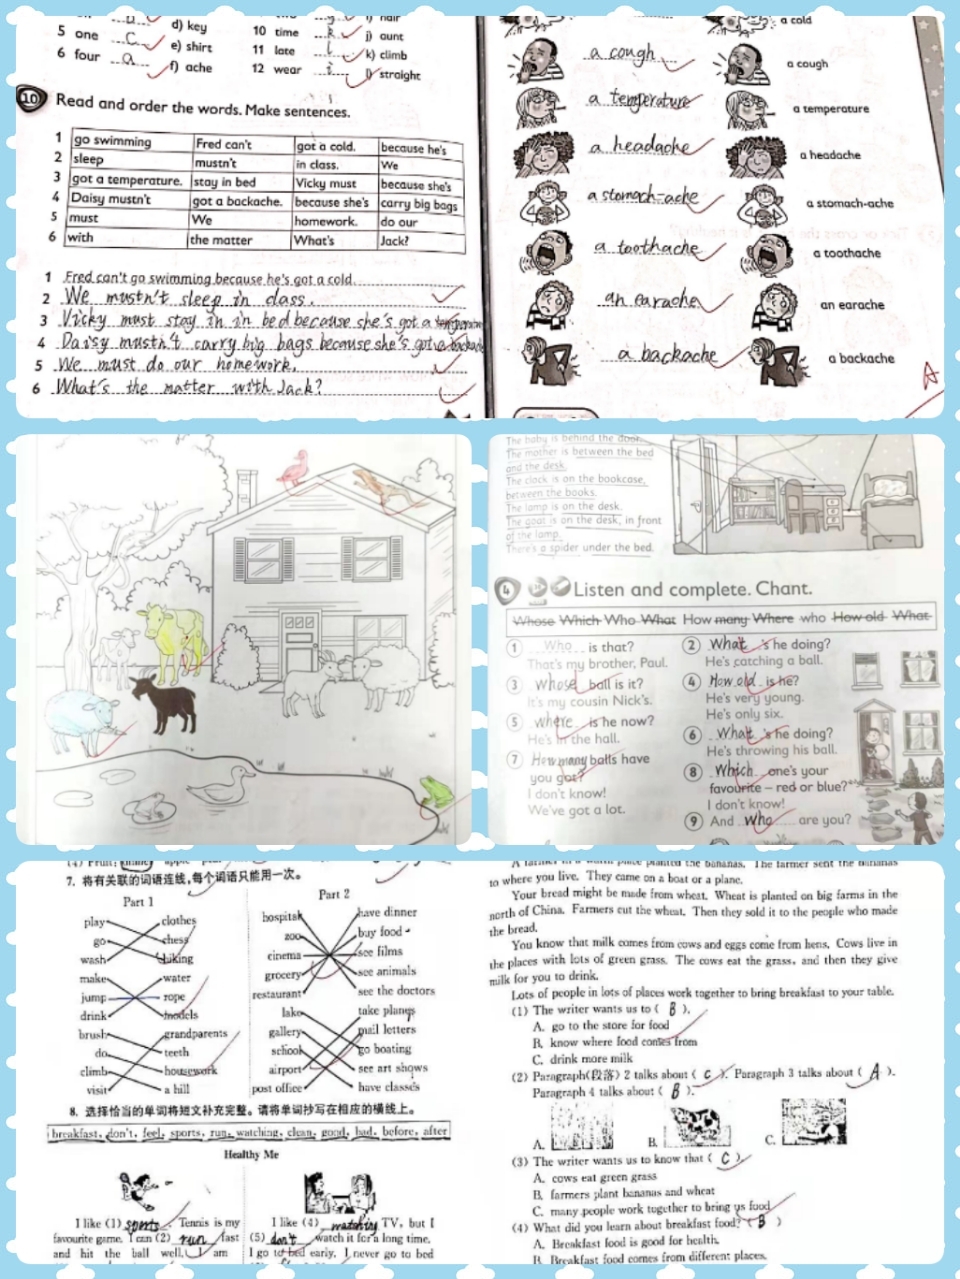 d) key
5 one c
e) shirt
6 four a
f) ache
i) hair
10 time k
j) aunt
11 late l
k) climb
12 wear i
l) straight
10 Read and order the words. Make sentences.
1 go swimming Fred can't got a cold. because he's
2 sleep mustn't in class. We
3 got a temperature. stay in bed Vicky must because she's
4 Daisy mustn't got a backache. because she's carry big bags
5 must We homework. do our
6 with the matter What's Jack?
1 Fred can't go swimming because he's got a cold.
2 We mustn't sleep in class.
3 Vicky must stay in in bed because she's got a temperature
4 Daisy mustn't carry big bags because she's got a backache
5 We must do our homework.
6 What's the matter with Jack?
a cold
a cough a cough
a temperature a temperature
a headache a headache
a stomach-ache a stomach-ache
a toothache a toothache
an earache an earache
a backache a backache
A
The baby is behind the door.
The mother is between the bed
and the desk.
The clock is on the bookcase,
between the books.
The lamp is on the desk.
The goat is on the desk, in front
of the lamp.
There's a spider under the bed.
4 Listen and complete. Chant.
Whose Which Who What How many Where who How old What
1 Who is that?
That's my brother, Paul.
2 What 's he doing?
He's catching a ball.
3 Whose ball is it?
It's my cousin Nick's.
4 How old is he?
He's very young.
He's only six.
5 where is he now?
He's in the hall.
6 What 's he doing?
He's throwing his ball.
7 How many balls have
you got?
I don't know!
We've got a lot.
8 Which one's your
favourite – red or blue?
I don't know!
9 And who are you?
7. 将有关联的词语连线,每个词语只能用一次。
Part 1
play clothes
go chess
wash hiking
make water
jump rope
drink models
brush grandparents
do teeth
climb housework
visit a hill
Part 2
hospital have dinner
zoo buy food
cinema see films
grocery see animals
restaurant see the doctors
lake take planes
gallery mail letters
school go boating
airport see art shows
post office have classes
8. 选择恰当的单词将短文补充完整。请将单词抄写在相应的横线上。
breakfast, don't, feel, sports, run, watching, clean, good, bad, before, after
Healthy Me
I like (1) sports. Tennis is my
favourite game. I can (2) run fast
and hit the ball well. I am
I like (4) watching TV, but I
(5) don't watch it for a long time.
I go to bed early. I never go to bed
to where you live. They came on a boat or a plane.
Your bread might be made from wheat. Wheat is planted on big farms in the
north of China. Farmers cut the wheat. Then they sold it to the people who made
the bread.
You know that milk comes from cows and eggs come from hens. Cows live in
the places with lots of green grass. The cows eat the grass, and then they give
milk for you to drink.
Lots of people in lots of places work together to bring breakfast to your table.
(1) The writer wants us to ( B ).
A. go to the store for food
B. know where food comes from
C. drink more milk
(2) Paragraph(段落) 2 talks about ( C ). Paragraph 3 talks about ( A ).
Paragraph 4 talks about ( B ).
A. B. C.
(3) The writer wants us to know that ( C ).
A. cows eat green grass
B. farmers plant bananas and wheat
C. many people work together to bring us food
(4) What did you learn about breakfast food? ( B )
A. Breakfast food is good for health.
B. Breakfast food comes from different places.